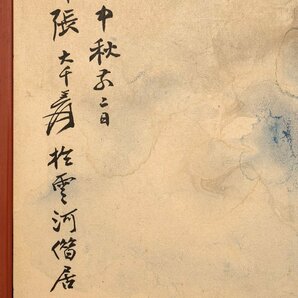 中秋前二日
張大千爰於雲河偕居